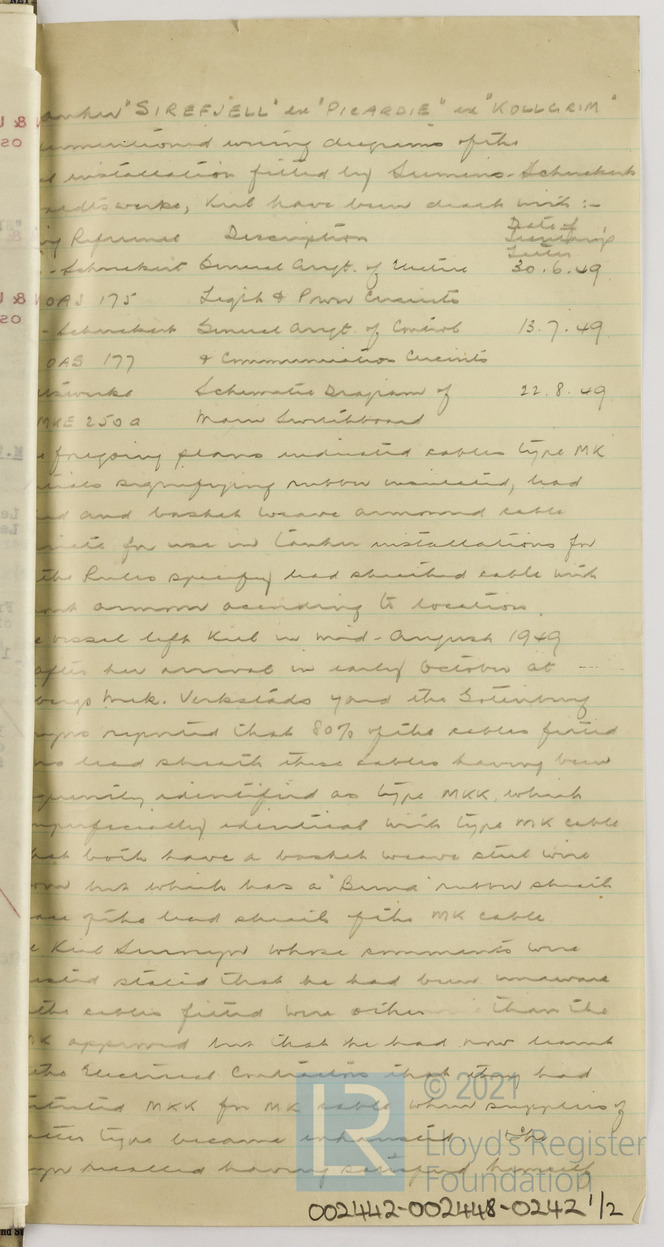 "SIREFJELL" ex "PICARDIE" ex "KOLLGRIM"
wiring diagrams of the
installation fitted by Siemens-Schuckert
Kiel have been dealt with :-
Description Date of Secretary's Letter
- Schuckert General Arrgt. of Electric 30.6.49
OAS 175 Light & Power Circuits
- Schuckert General Arrgt. of Control 13.7.49
OAS 177 & Communication Circuits
Schematic Diagram of 22.8.49
MKE 250a Main Switchboard
foregoing plans indicated cables type MK
signifying rubber insulated, lead
and basket weave armoured cable
for use in tanker installations for
the Rules specify lead sheathed cable with
armour according to location.
vessel left Kiel in mid-August 1949
after her arrival in early October at
Mek. Verkstads yard the Gotenburg
reported that 80% of the cables fitted
no lead sheath these cables having been
identified as type MKK, which
superficially identical with type MK cable
that both have a basket weave steel wire
but which has a "Buna" rubber sheath
of the lead sheath of the MK cable
Kiel Surveyor whose comments were
stated that he had been unaware
the cables fitted were other than the
MK approved but that he had now learnt
the Electrical Contractors that they had
MKK for MK cable when supplies of
type became exhausted. The
recalled having satisfied himself
© 2021
LR
Lloyd's Register
Foundation
002442-002448-0242 1/2